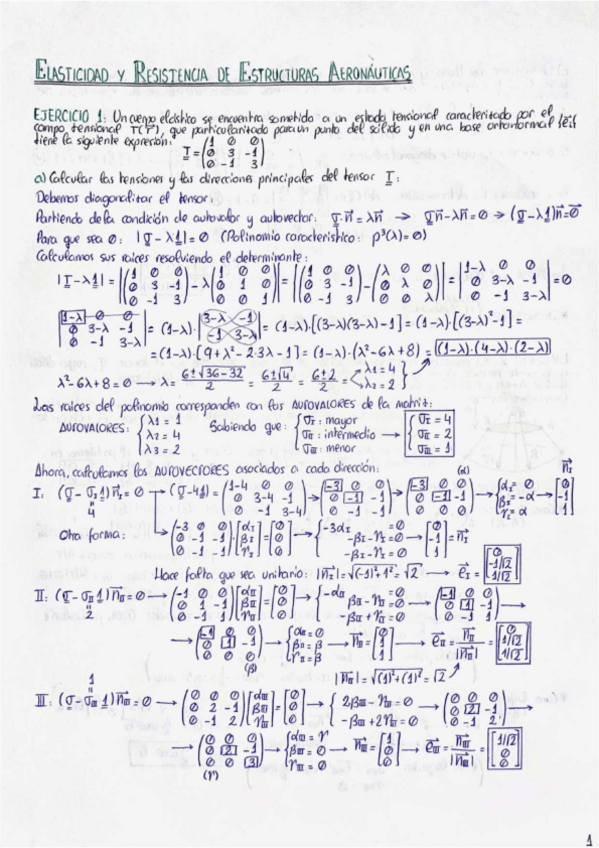 ELASTICIDAD Y RESISTENCIA DE ESTRUCTURAS AERONÁUTICAS
EJERCICIO 1: Un cuerpo elástico se encuentra sometido a un estado tensional caracterizado por el
campo tensional T(r⃗), que particularizado para un punto del sólido y en una base ortonormal
tiene la siguiente expresión: T = (1 0 0; 0 3 -1; 0 -1 3)
a) Calcular las tensiones y las direcciones principales del tensor T:
Debemos diagonalizar el tensor:
Partiendo de la condición de autovalor y autovector: σ·n⃗ = λn⃗ → σn⃗ - λn⃗ = 0 → (σ - λ1)n⃗ = 0
Para que sea 0: |σ - λ1| = 0 (Polinomio característico: p³(λ) = 0)
Calculamos sus raíces resolviendo el determinante:
|σ - λ1| = |(1 0 0; 0 3 -1; 0 -1 3) - λ(1 0 0; 0 1 0; 0 0 1)| = |(1 0 0; 0 3 -1; 0 -1 3) - (λ 0 0; 0 λ 0; 0 0 λ)| = |1-λ 0 0; 0 3-λ -1; 0 -1 3-λ| = 0
|1-λ 0 0; 0 3-λ -1; 0 -1 3-λ| = (1-λ)·|3-λ -1; -1 3-λ| = (1-λ)·[(3-λ)(3-λ)-1] = (1-λ)·[(3-λ)²-1] =
= (1-λ)·[9+λ²-2·3λ-1] = (1-λ)·(λ²-6λ+8) = (1-λ)·(4-λ)·(2-λ)
λ²-6λ+8 = 0 → λ = 6±√36-32 / 2 = 6±√4 / 2 = 6±2 / 2 = λ₁ = 4 λ₂ = 2
Las raíces del polinomio corresponden con los AUTOVALORES de la matriz:
AUTOVALORES: {λ1 = 1 λ2 = 4 λ3 = 2 Sabiendo que: {σI : mayor σII : intermedio σIII : menor → {σI = 4 σII = 2 σIII = 1
Ahora, calculamos los AUTOVECTORES asociados a cada dirección:
I: (σ - σI 1)n⃗I = 0 → (σ - 41) = (1-4 0 0; 0 3-4 -1; 0 -1 3-4) → (-3 0 0; 0 -1 -1; 0 -1 -1) → (-3 0 0; 0 -1 -1; 0 0 0) (α) → {αI = 0 βI = -α γI = α → n⃗I [0 -1 1]
4
Otra forma: (-3 0 0; 0 -1 -1; 0 -1 -1)[αI βI γI] = [0 0 0] → {-3αI = 0 -βI - γI = 0 -βI - γI = 0 → [0 -1 1] = n⃗I
Hace falta que sea unitario: |n⃗I| = √(-1)²+1² = √2 → e⃗I = [0 -1/√2 1/√2]
II: (σ - σII 1)n⃗II = 0 → (-1 0 0; 0 1 -1; 0 -1 1)[αII βII γII] = [0 0 0] → {-αII = 0 βII - γII = 0 -βII + γII = 0 → (-1 0 0; 0 1 -1; 0 -1 1) →
2
→ (-1 0 0; 0 1 -1; 0 0 0) (β) → {αII = 0 βII = β γII = β → n⃗II = [0 1 1] → e⃗II = n⃗II / |n⃗II| = [0 1/√2 1/√2]
|n⃗II| = √(1)²+(1)² = √2
1
III: (σ - σIII 1)n⃗III = 0 → (0 0 0; 0 2 -1; 0 -1 2)[αIII βIII γIII] = [0 0 0] → {2βIII - γIII = 0 -βIII + 2γIII = 0 → (0 0 0; 0 2 -1; 0 -1 2) →
→ (0 0 0; 0 2 -1; 0 0 3) (γ) → {αIII = γ βIII = 0 γIII = 0 → n⃗III = [1 0 0] → e⃗III = n⃗III / |n⃗III| = [1/√2 0 0]
1